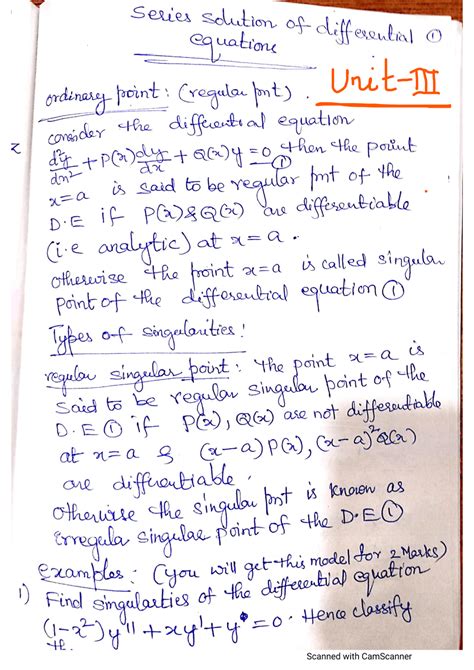 Series solution of differential ①
equations
Unit-III
ordinary point: (regular pnt).
consider the differential equation
d²y/dx² + P(x)dy/dx + Q(x)y = 0 ① then the point
x=a is said to be regular pnt of the
D.E if P(x) & Q(x) are differentiable
(i.e analytic) at x=a.
otherwise the point x=a is called singular
point of the differential equation ①
Types of singularities!
regular singular point: the point x=a is
said to be regular singular point of the
D.E ① if P(x), Q(x) are not differentiable
at x=a & (x-a)P(x), (x-a)²Q(x)
are differentiable.
otherwise the singular pnt is known as
irregular singular point of the D.E ①
Examples: (you will get this model for 2 Marks)
1) Find singularties of the differential equation
(1-x²)y'' + xy' + y = 0. Hence classify
the.
Scanned with CamScanner